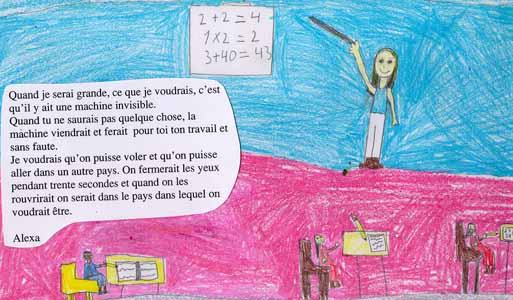 2 + 2 = 4
1 x 2 = 2
3+40 = 43
Quand je serai grande, ce que je voudrais, c'est
qu'il y ait une machine invisible.
Quand tu ne saurais pas quelque chose, la
machine viendrait et ferait pour toi ton travail et
sans faute.
Je voudrais qu'on puisse voler et qu'on puisse
aller dans un autre pays. On fermerait les yeux
pendant trente secondes et quand on les
rouvrirait on serait dans le pays dans lequel on
voudrait être.
Alexa